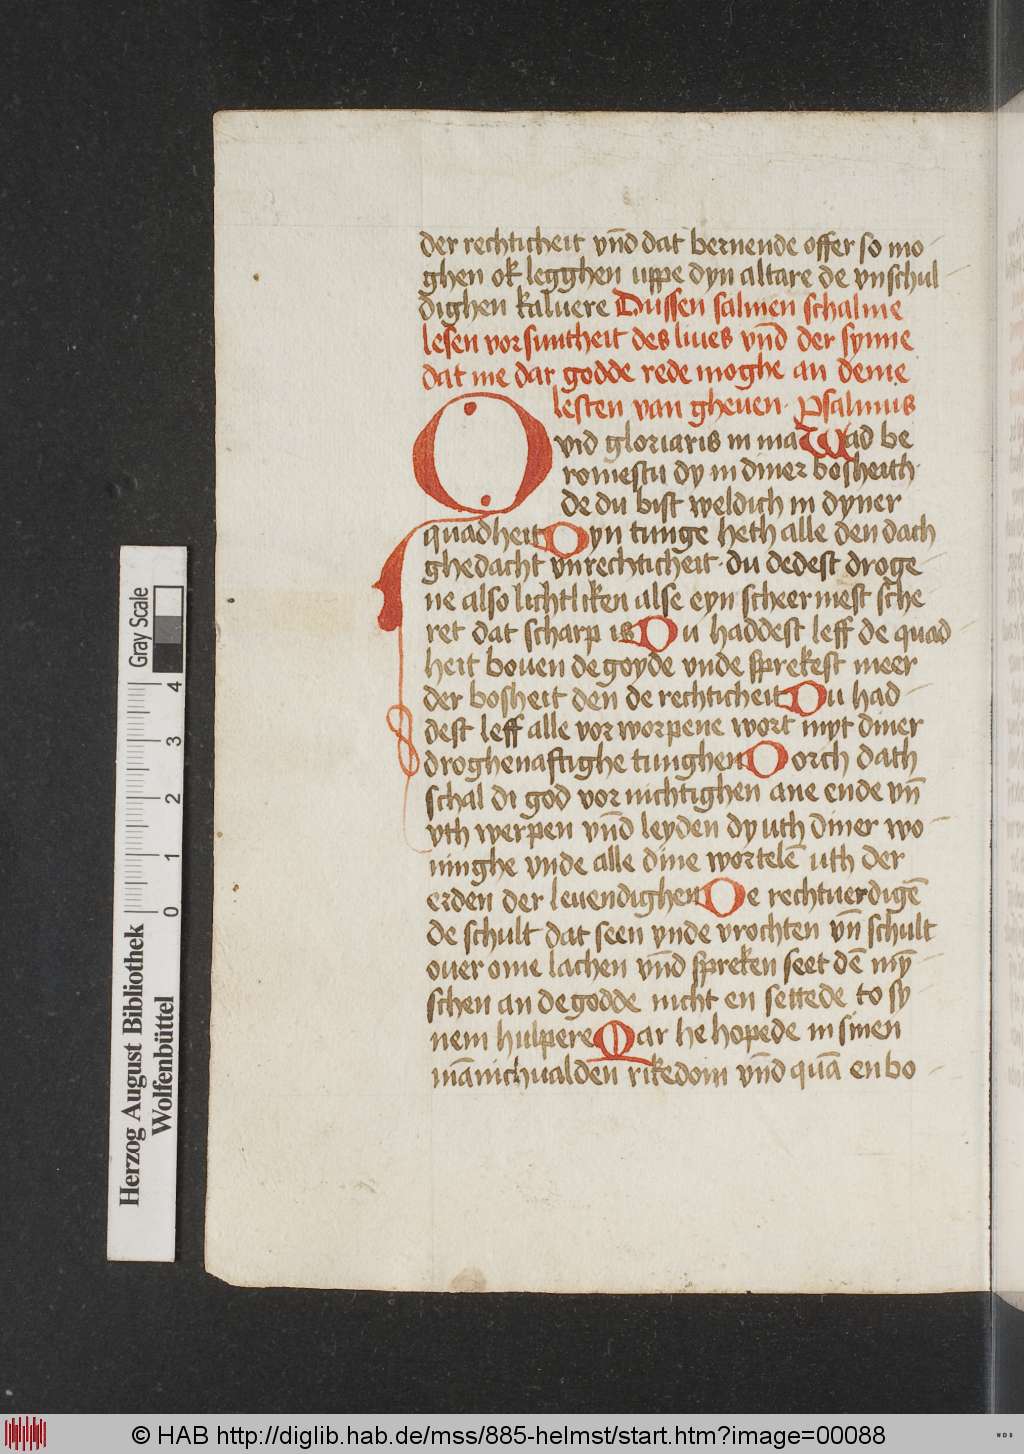 der rechticheit vn̄d dat bernende offer so mo-
ghen ok legghen uppe dyn altare de vnschul-
dighen kaluere Dussen salmen schalme
lesen vor suntheit des liues vn̄d der synne
dat me dar godde rede moghe an deme
lesten van gheuen. Psalmus
Qvid gloriaris in ma Wad be
romestu dy in diner bosheith.
de du bist weldich in dyner
quadheit Dyn tunge heth alle den dach
ghedacht vnrechticheit. du dedest droge-
ne also lichtliken alse eyn scheermest sche-
ret dat scharp is Du haddest leff de quad-
heit bouen de goyde vnde sprekest meer
der bosheit den de rechticheit Du had-
dest leff alle vor worpene wort myt diner
droghenaftighe tunghen Dorch dath
schal di god vor nichtighen ane ende vn̄
vth werpen vn̄d leyden dy uth diner wo-
ninghe vnde alle dine wortelē uth der
erden der leuendighen De rechtuerdigē
de schult dat seen vnde vrochten vn̄ schult
ouer ome lachen vn̄d spreken seet dē my-
schen an de godde nicht en settede to sy-
nem hulpere Mar he hopede in sinen
mānichualden rikedom vn̄d quā en bo-
Gray Scale
4
3
2
1
0
Herzog August Bibliothek
Wolfenbüttel
© HAB http://diglib.hab.de/mss/885-helmst/start.htm?image=00088